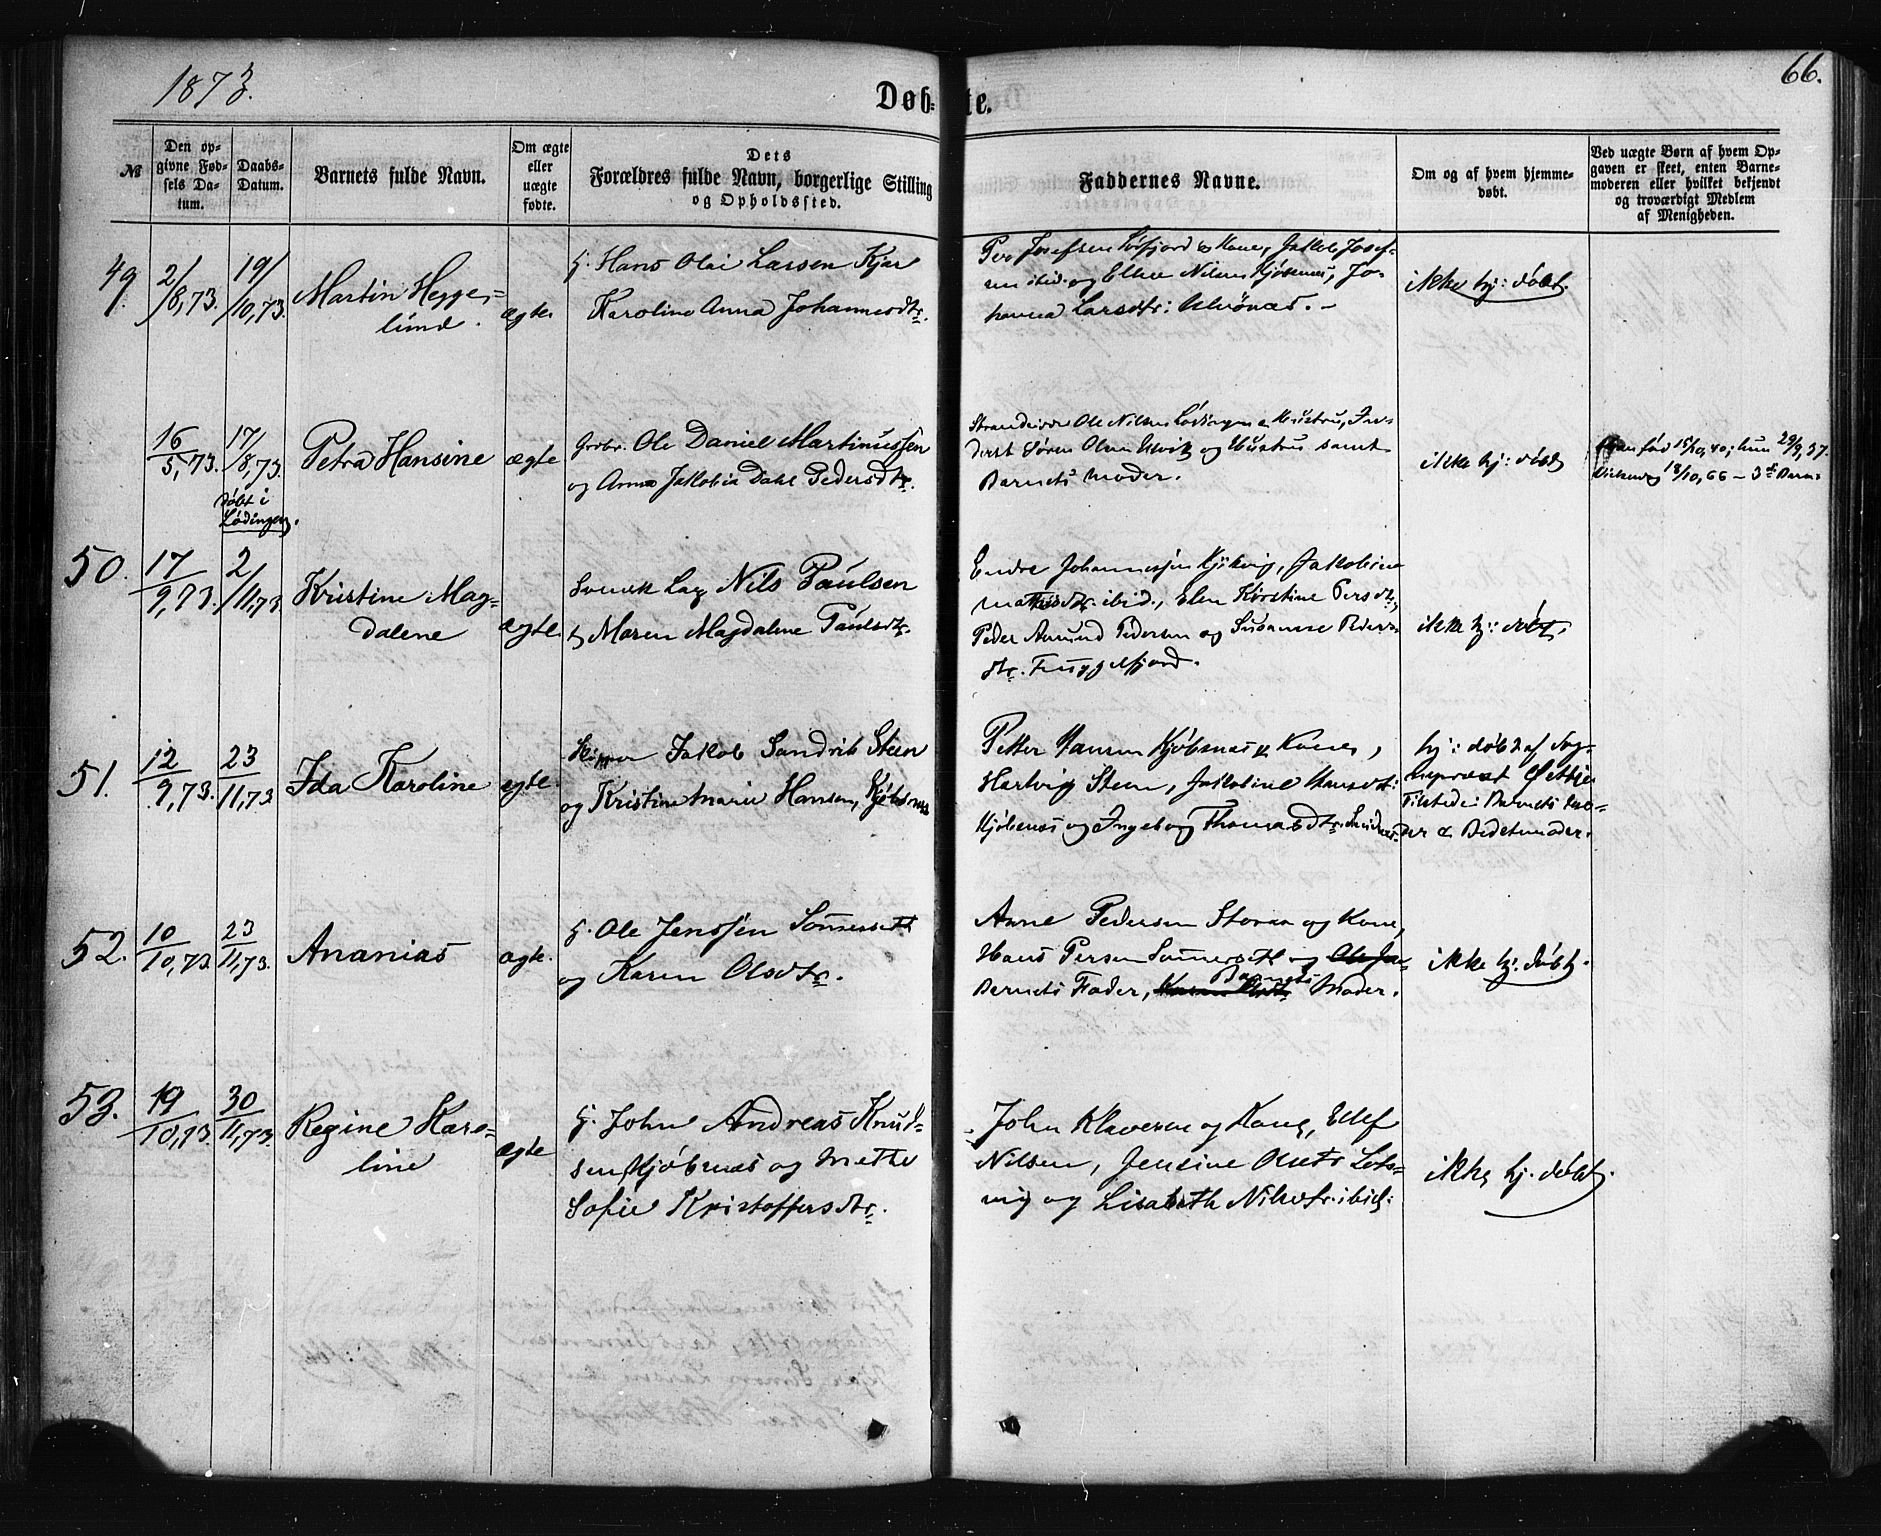 1873.
Døb-
te.
66.
№
Den op-
givne Fød-
sels Da-
tum.
Daabs-
Datum.
Barnets fulde Navn.
Om ægte
eller
uægte
fødte.
Dets
Forældres fulde Navn, borgerlige Stilling
og Opholdssted.
Faddernes Navne.
Om og af hvem hjemme-
døbt.
Ved uægte Børn af hvem Op-
gaven er skeet, enten Barne-
moderen eller hvilket bekjendt
og troværdigt Medlem
af Menigheden.
49.
2/8,73.
19/10,73.
Martin Hegge-
lund.
ægte
G. Hans Olai Larsen Kjær
Karoline Anna Johannesdtr.
Per Josefsen & Kone, Jakob Josef-
sen ibid. og Ellen Nilsen Kjøbsnæs, Jo-
hanna Larsdtr:
ikke hj: døbt.
16/5,73.
17/8,73.
Døbt i
Lødingen.
Petra Hansine
ægte
Ole Daniel Martinussen
og Anna Jakobia Dahl Pedersdtr.
Ole Nilsen Lødingen & Hustru,
Søren Olsen og Hustru samt
Barnets Moder.
ikke hj: døbt
født 15/10,40; hun 29/9,37.
18/10,66 – 3d Barn.
50.
17/9,73.
2/11,73
Kristine Mag-
dalene
ægte
Svensk Lap Nils Paulsen
& Maren Magdalene Paulsdtr.
Endre Johannessen Kjikvig, Jakobine
Mathisdtr. ibid., Elen Kirstine Persdtr,
Peder Amund Pedersen og Susanne Peders-
dtr. Tuggelfjord.
ikke hj: døbt.
51.
12/9,73.
23/11,73
Ida Karoline
ægte
Skipper Jakob Sandvib Steen
og Kristine Marie Hansen, Kjøbsnæs
Petter Hansen Kjøbsnæs & Kone,
Hartvig Steen, Jakobine Hansdtr:
Kjøbsnæs og Ingeborg Thomasdtr.
hj: døbt af Sog-
nepræst
Tilstede: Barnets Fa-
der & Bedstemoder.
52.
10/10,73
23/11,73.
Ananias
ægte.
G. Ole Jenssen Sommersett
og Karen Olsdtr.
Arne Pedersen Storaa og Kone,
Hans Persen Sommersett og Ole Jen
Barnets Fader, Karen Olsdtr Barnets Moder.
ikke hj. døbt.
53.
19/10,73.
30/11,73.
Regine Karo-
line
ægte
G. John Andreas Knud-
sen Kjøbsnæs og Mette
Sofie Kristoffersdtr.
John Klavesen og Kone, Ellef
Nilsen, Jensine Olsdtr
og Lisabeth Nilsdtr. ibid:
ikke hj. døbt.